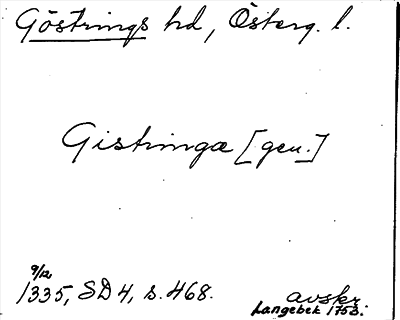 Göstrings hd, Österg. l.
Gistringæ [gen.]
9/12
1335, SD 4, s. 468.
avskr.
Langebek 1753.